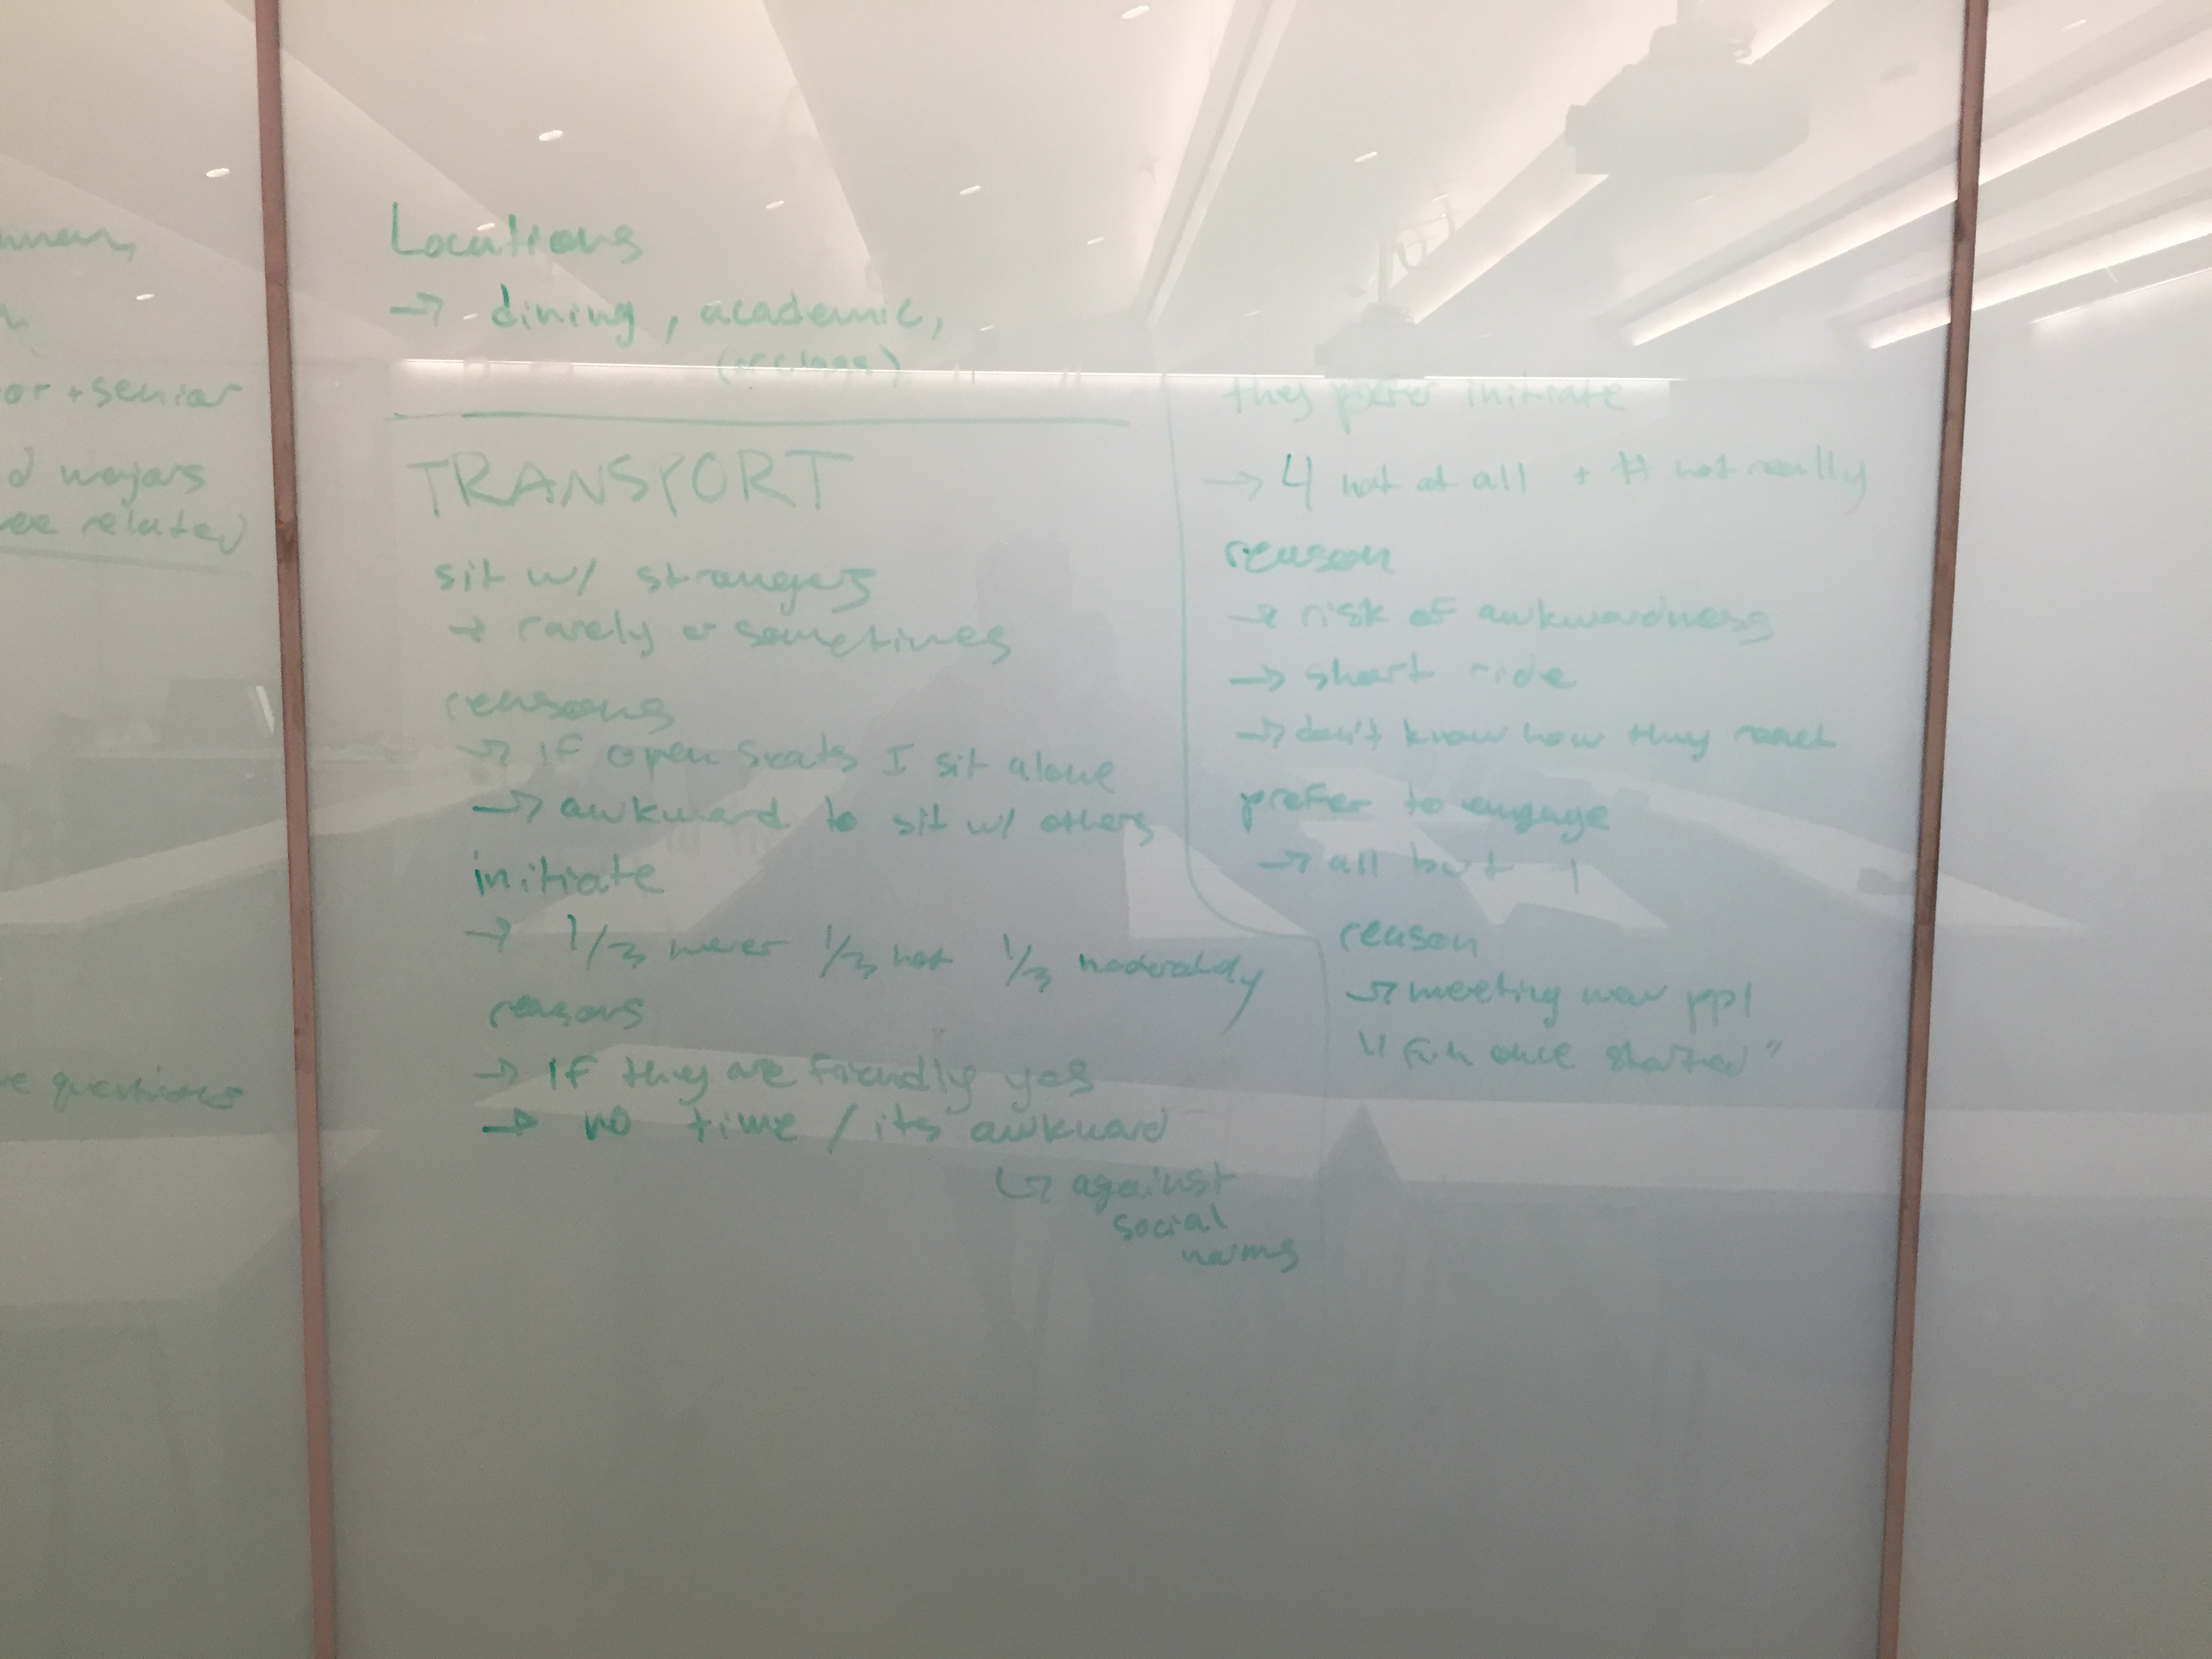 or + senior
majors
related
questions
Locations
→ dining, academic,
(or class)
TRANSPORT
sit w/ strangers
→ rarely or sometimes
reasons
→ if open seats I sit alone
→ awkward to sit w/ others
initiate
→ 1/3 never 1/3 not 1/3 moderately
reasons
→ If they are friendly yes
→ no time / its awkward
↳ against
social
norms
they prefer initiate
→ 4 not at all + # not really
reason
→ risk of awkwardness
→ short ride
→ don't know how they react
prefer to engage
→ all but 1
reason
→ meeting new ppl
"fun once started"